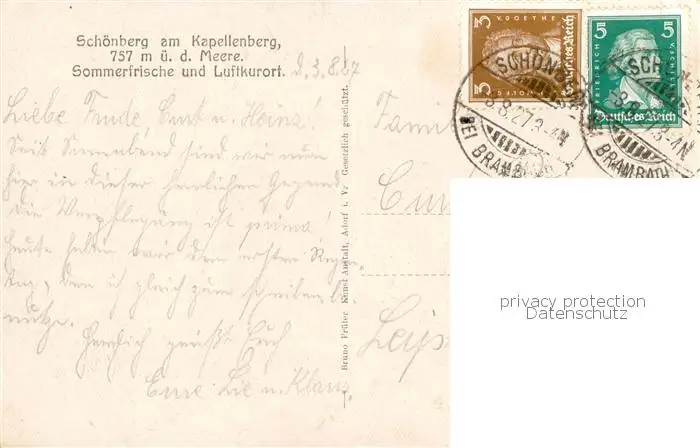 Schönberg am Kapellenberg,
757 m ü. d. Meere.
Sommerfrische und Luftkurort.
d. 3.8.27
Liebe Trude, Curt u. Heinz!
Seit Sonnabend sind wir nun
hier in dieser herrlichen Gegend
die Verpflegung ist prima!
Heute haben wir den ersten Regen-
tag, den ich gleich zum schreiben be-
nutze.
Herzlich grüßt Euch
Eure u. Klaus
Bruno Prüfer Kunst-Anstalt, Adorf i. V. Gesetzlich geschützt.
Familie
Cur
Leip
3 V. GOETHE 3
Deutsches Reich
5 5
FRIEDRICH V. SCHILLER
Deutsches Reich
SCHÖNB
8.8.27.3-4N
BEI BRAMBACH
SCHÖN
8.8.27.3-4N
BRAMBACH
privacy protection
Datenschutz